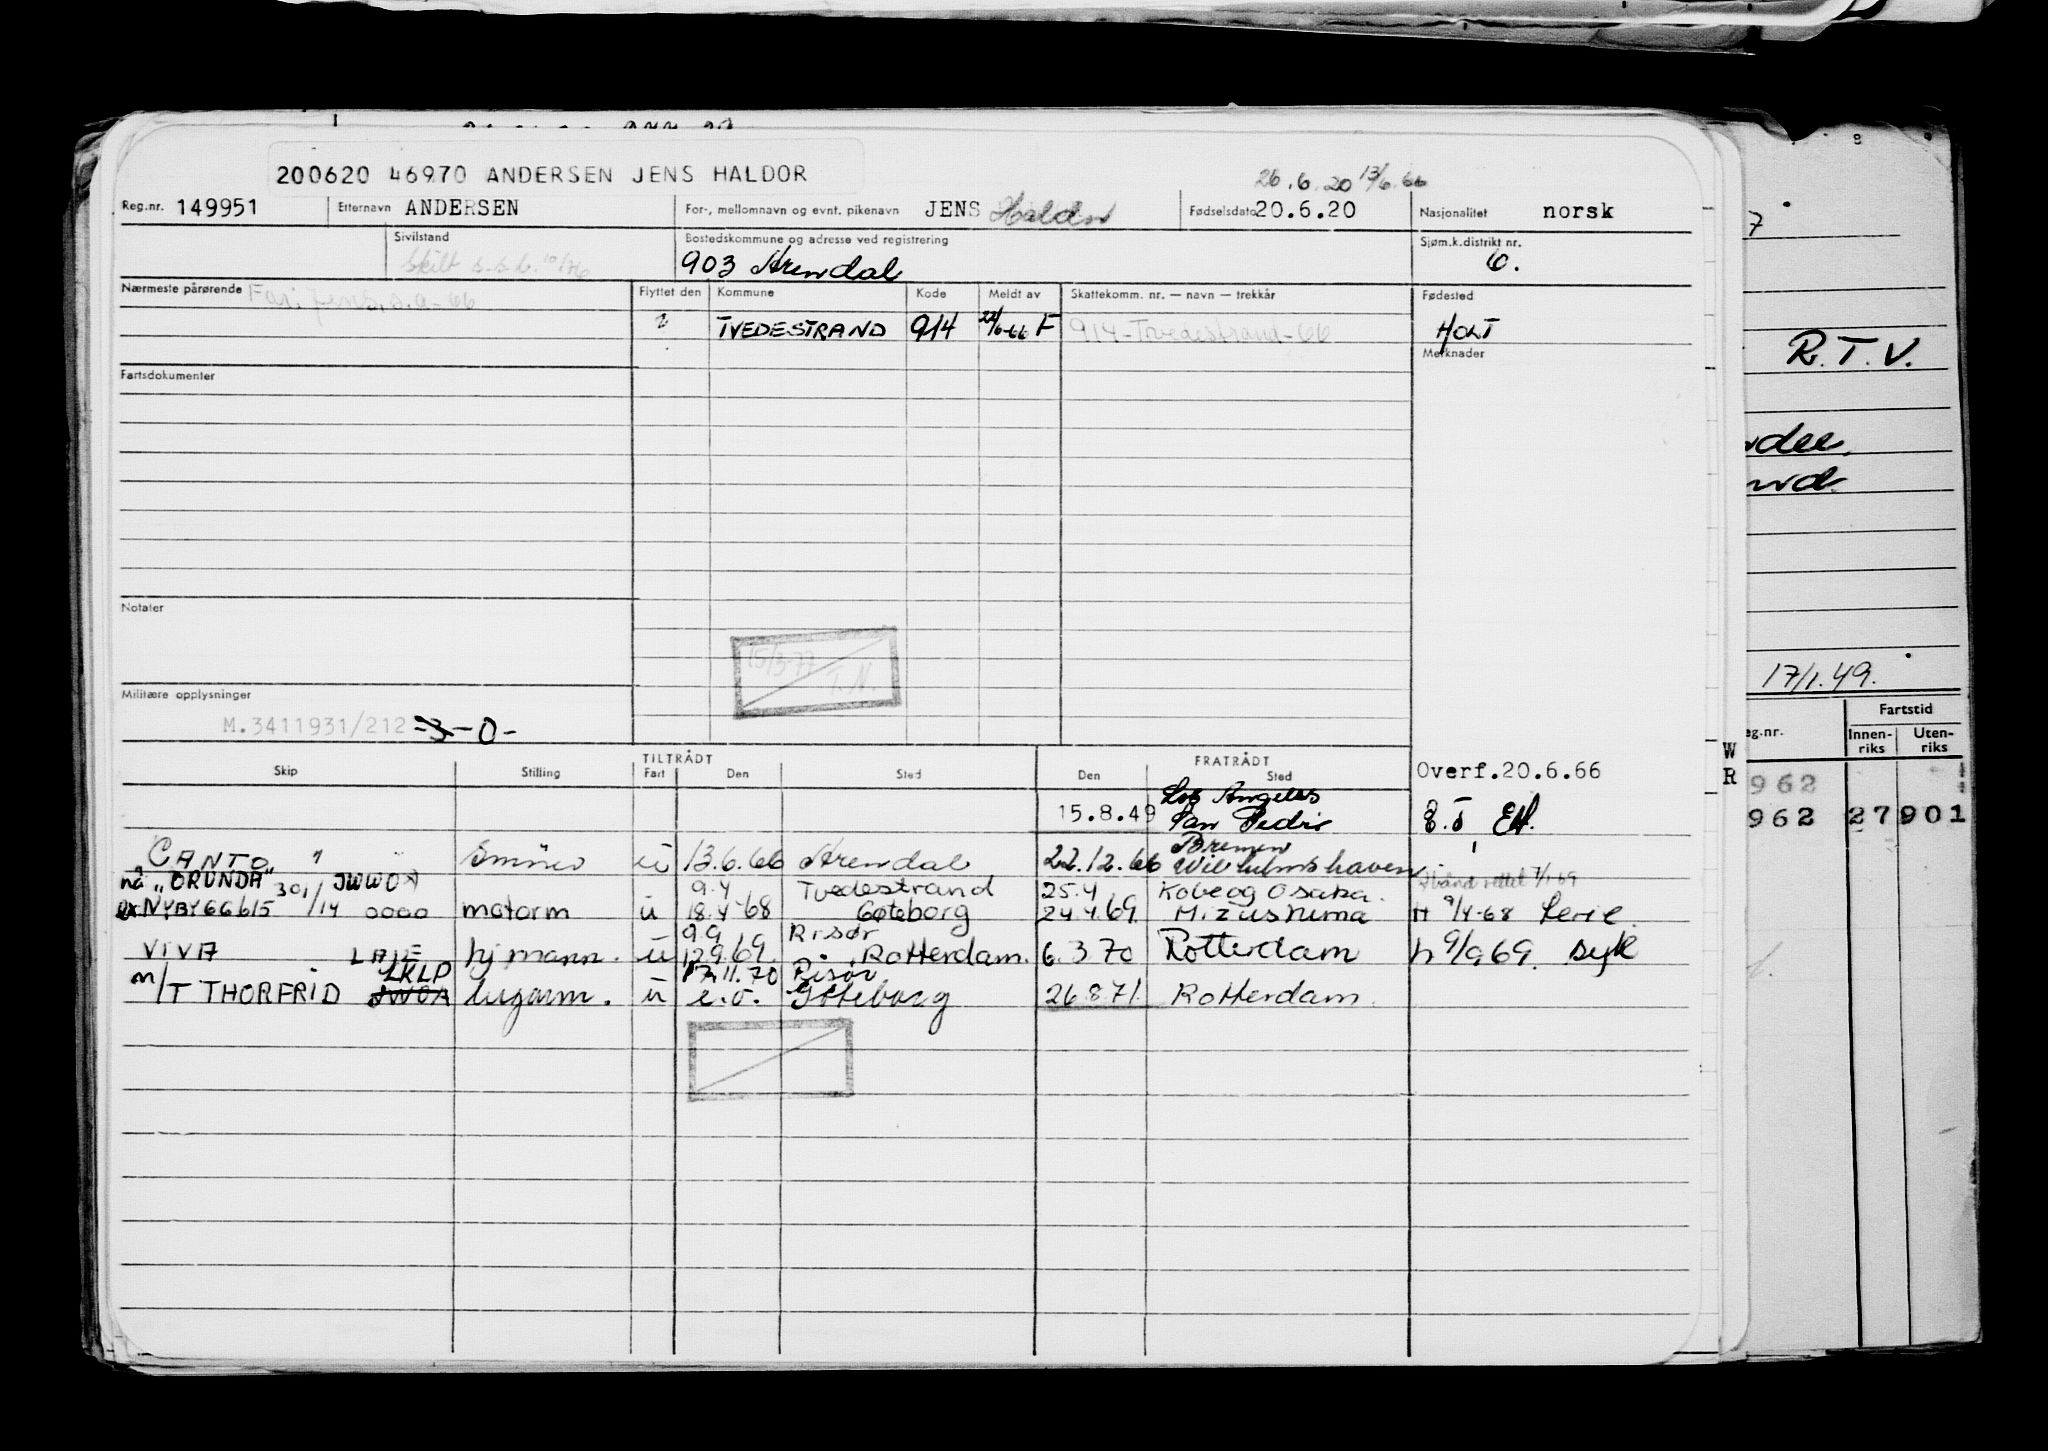 200620 46970 ANDERSEN JENS HALDOR
26.6.20 13/6.66
Reg.nr. 149951 Etternavn ANDERSEN For-, mellomnavn og evnt. pikenavn JENS Haldor Fødselsdato 20.6.20 Nasjonalitet norsk
Sivilstand Bostedskommune og adresse ved registrering Sjøm.k.distrikt nr.
Skilt s.s.b. 10/76 903 Arendal 6.
Nærmeste pårørende Far: Jens, s.a-66 Flyttet den Kommune Kode Meldt av Skattekomm. nr. — navn — trekkår Fødested
? TVEDESTRAND 914 22/6-66 F 914-Tvedestrand-66 HOLT
Merknader
Fartsdokumenter
Notater
15/3-77 T.N.
Militære opplysninger
M.3411931/212 -3-0-
Skip Stilling TILTRÅDT Fart Den Sted FRATRÅDT Den Sted Overf.20.6.66
15.8.49 Los Angeles San Pedro
CANTO ü 13.6.66 Arendal 22.12.66 Bremen Wilhelmshaven
nå "ORUNDA" JWWO 9.4 Tvedestrand 25.4 Kobe og Osaka
ex NYBY66615 30,1/14 0000 motorm ü 18.4-68 Gøteborg 24.4.69 Mizushima H 9/4-68 ferie.
VIVA hjmann. ü 9.9 12.9.69. Risør Rotterdam. 6.3.70 Rotterdam h 9/9 69. syk
m/T THORFRID LKLP JWOA lugarm. ü 17.11.70 e.o. Risør Gøteborg 26.8.71. Rotterdam.
W
R
7
R.T.V.
17/1.49.
eg.nr. Fartstid
Innen-riks Uten-riks
962
962 27 901
8